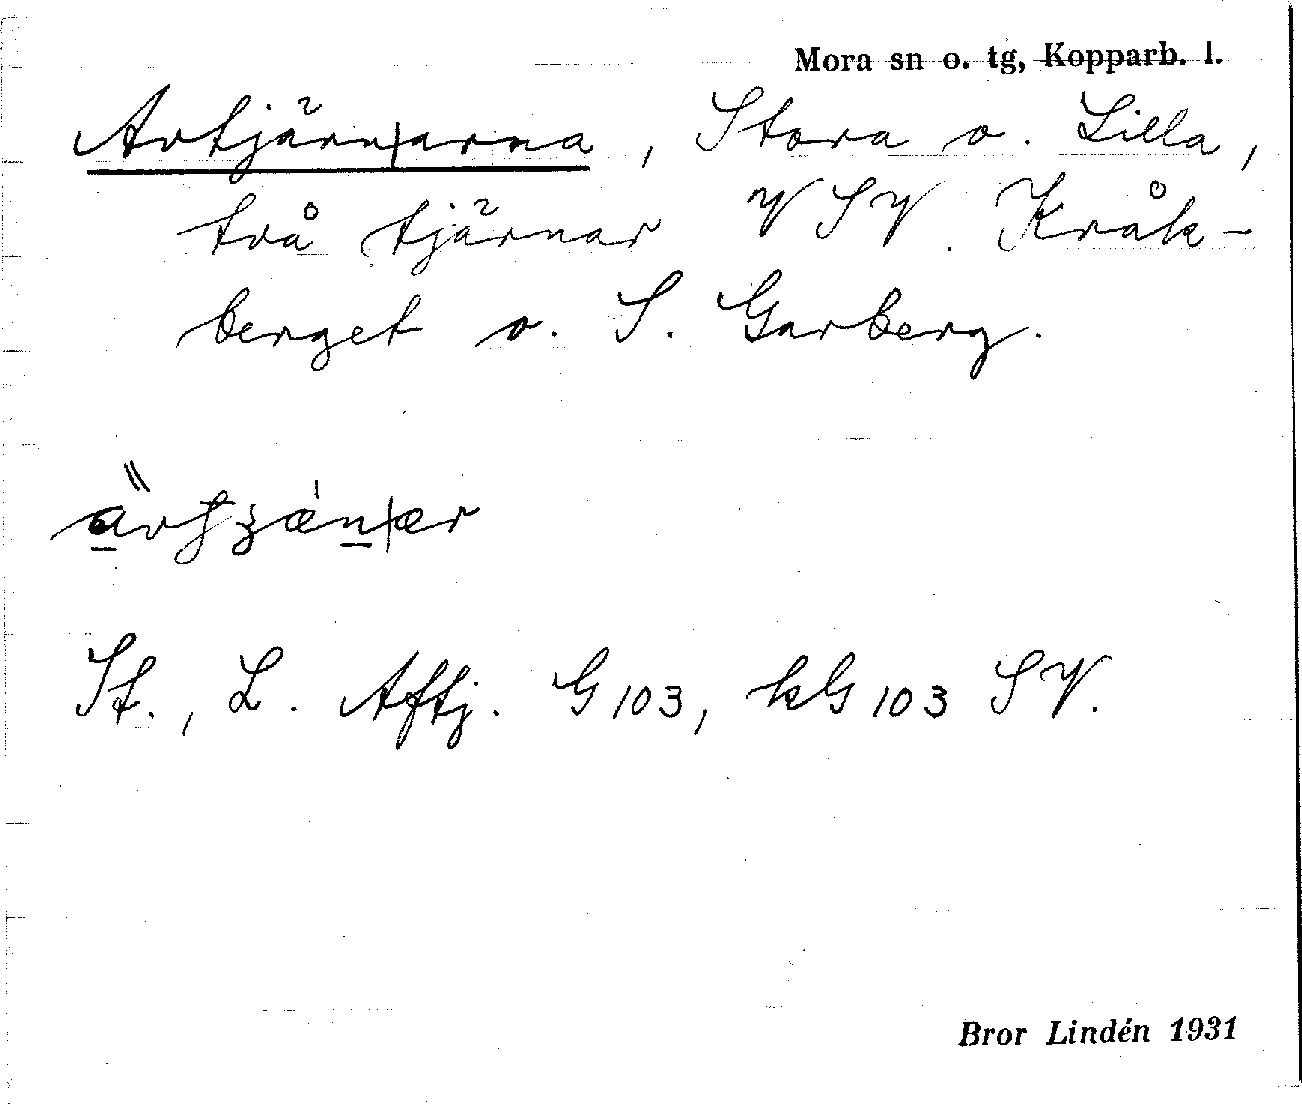 Mora sn o. tg, Kopparb. l.
Avtjärn|arna, Stora o. Lilla,
två tjärnar VSV. Kråk-
berget o. S. Garberg.
St., L. Aftj. G 103, kG 103 SV.
Bror Lindén 1931